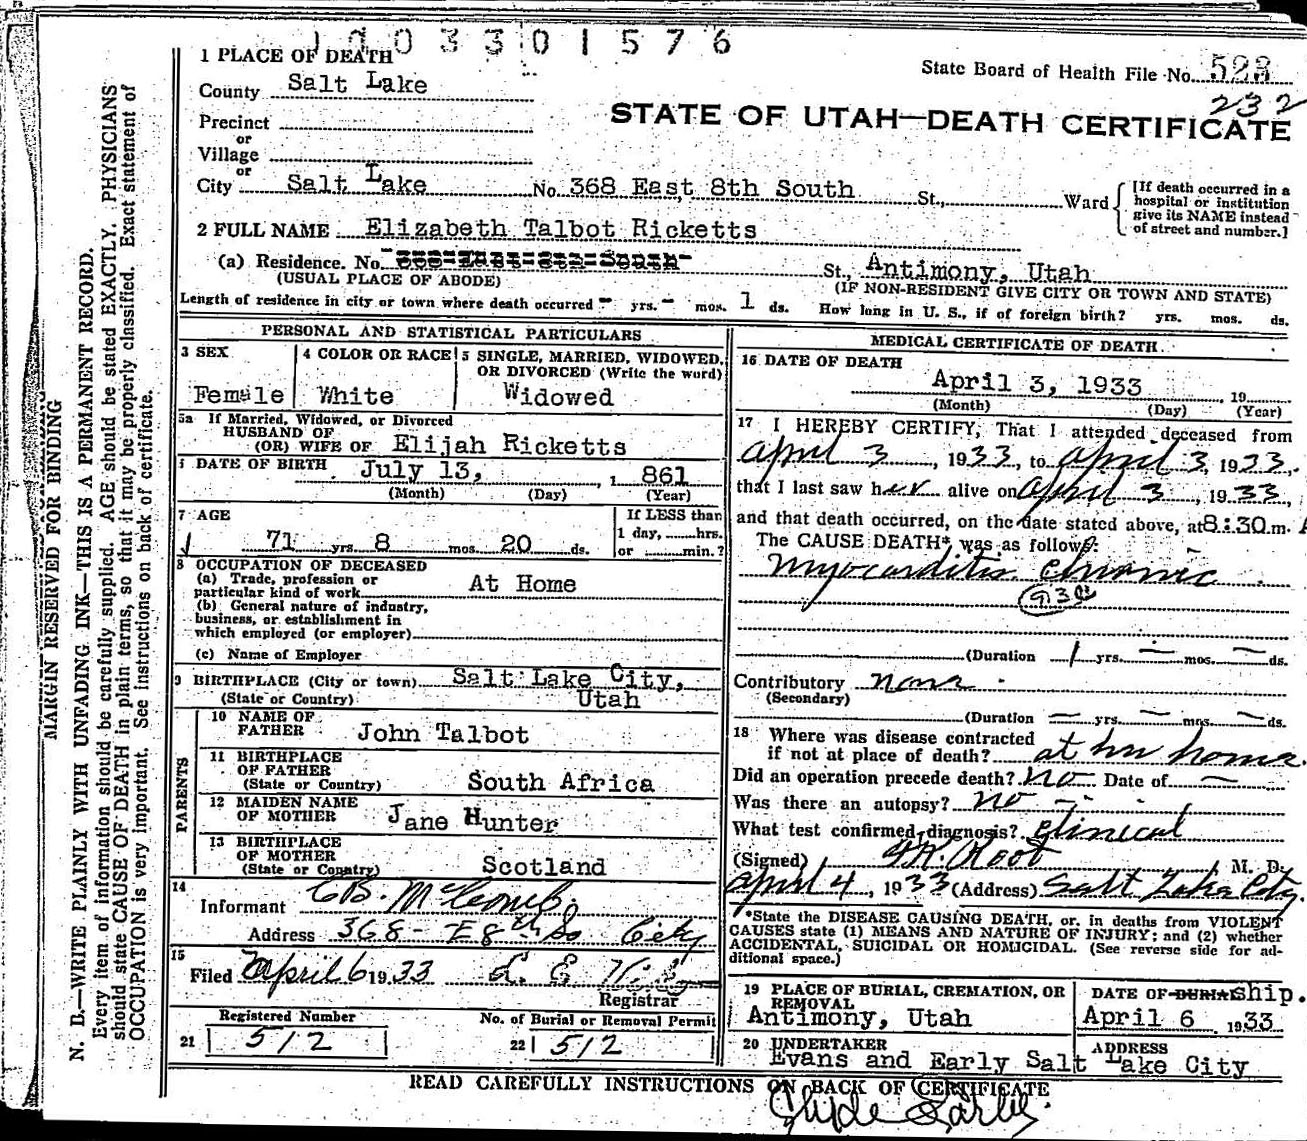 1003301576
State Board of Health File No. 523
232
STATE OF UTAH—DEATH CERTIFICATE
1 PLACE OF DEATH
County Salt Lake
Precinct
or
Village
or
City Salt Lake No. 368 East 8th South St., Ward
[If death occurred in a hospital or institution give its NAME instead of street and number.]
2 FULL NAME Elizabeth Talbot Ricketts
(a) Residence. No. 368 East 8th South St., Antimony, Utah
(USUAL PLACE OF ABODE) (IF NON-RESIDENT GIVE CITY OR TOWN AND STATE)
Length of residence in city or town where death occurred — yrs. — mos. 1 ds. How long in U. S., if of foreign birth? yrs. mos. ds.
PERSONAL AND STATISTICAL PARTICULARS
3 SEX
Female
4 COLOR OR RACE
White
5 SINGLE, MARRIED, WIDOWED, OR DIVORCED (Write the word)
Widowed
5a If Married, Widowed, or Divorced
HUSBAND OF
(OR) WIFE OF Elijah Ricketts
DATE OF BIRTH July 13, 1 861
(Month) (Day) (Year)
7 AGE
71 yrs. 8 mos. 20 ds.
If LESS than
1 day, hrs.
or min.?
8 OCCUPATION OF DECEASED
(a) Trade, profession or
particular kind of work At Home
(b) General nature of industry,
business, or establishment in
which employed (or employer)
(c) Name of Employer
9 BIRTHPLACE (City or town) Salt Lake City,
(State or Country) Utah
PARENTS
10 NAME OF
FATHER John Talbot
11 BIRTHPLACE
OF FATHER
(State or Country) South Africa
12 MAIDEN NAME
OF MOTHER Jane Hunter
13 BIRTHPLACE
OF MOTHER
(State or Country) Scotland
14
Informant C B. McComb
Address 368 - E 8th So City
15
Filed April 6 1933 L. E
Registrar
Registered Number
21 512
No. of Burial or Removal Permit
22 512
MEDICAL CERTIFICATE OF DEATH
16 DATE OF DEATH
April 3, 1933 19
(Month) (Day) (Year)
17 I HEREBY CERTIFY, That I attended deceased from
April 3, 1933, to April 3, 1933.
that I last saw her alive on April 3, 1933,
and that death occurred, on the date stated above, at 8:30 m. A
The CAUSE DEATH* was as follows:
Myocarditis chronic
(Duration 1 yrs. — mos. — ds.
Contributory none
(Secondary)
(Duration — yrs. — mos. — ds.
18 Where was disease contracted
if not at place of death? at her home.
Did an operation precede death? no Date of —
Was there an autopsy? no
What test confirmed diagnosis? Clinical
(Signed) Root M. D.
April 4, 1933 (Address) Salt Lake City.
*State the DISEASE CAUSING DEATH, or, in deaths from VIOLENT
CAUSES state (1) MEANS AND NATURE OF INJURY; and (2) whether
ACCIDENTAL, SUICIDAL OR HOMICIDAL. (See reverse side for ad-
ditional space.)
19 PLACE OF BURIAL, CREMATION, OR
REMOVAL
Antimony, Utah
DATE OF BURIAL Ship.
April 6 1933
20 UNDERTAKER
Evans and Early
ADDRESS
Salt Lake City
READ CAREFULLY INSTRUCTIONS ON BACK OF CERTIFICATE
Clyde Early
MARGIN RESERVED FOR BINDING
N. B.—WRITE PLAINLY WITH UNFADING INK—THIS IS A PERMANENT RECORD.
Every item of information should be carefully supplied. AGE should be stated EXACTLY. PHYSICIANS
should state CAUSE OF DEATH in plain terms, so that it may be properly classified. Exact statement of
OCCUPATION is very important. See instructions on back of certificate.